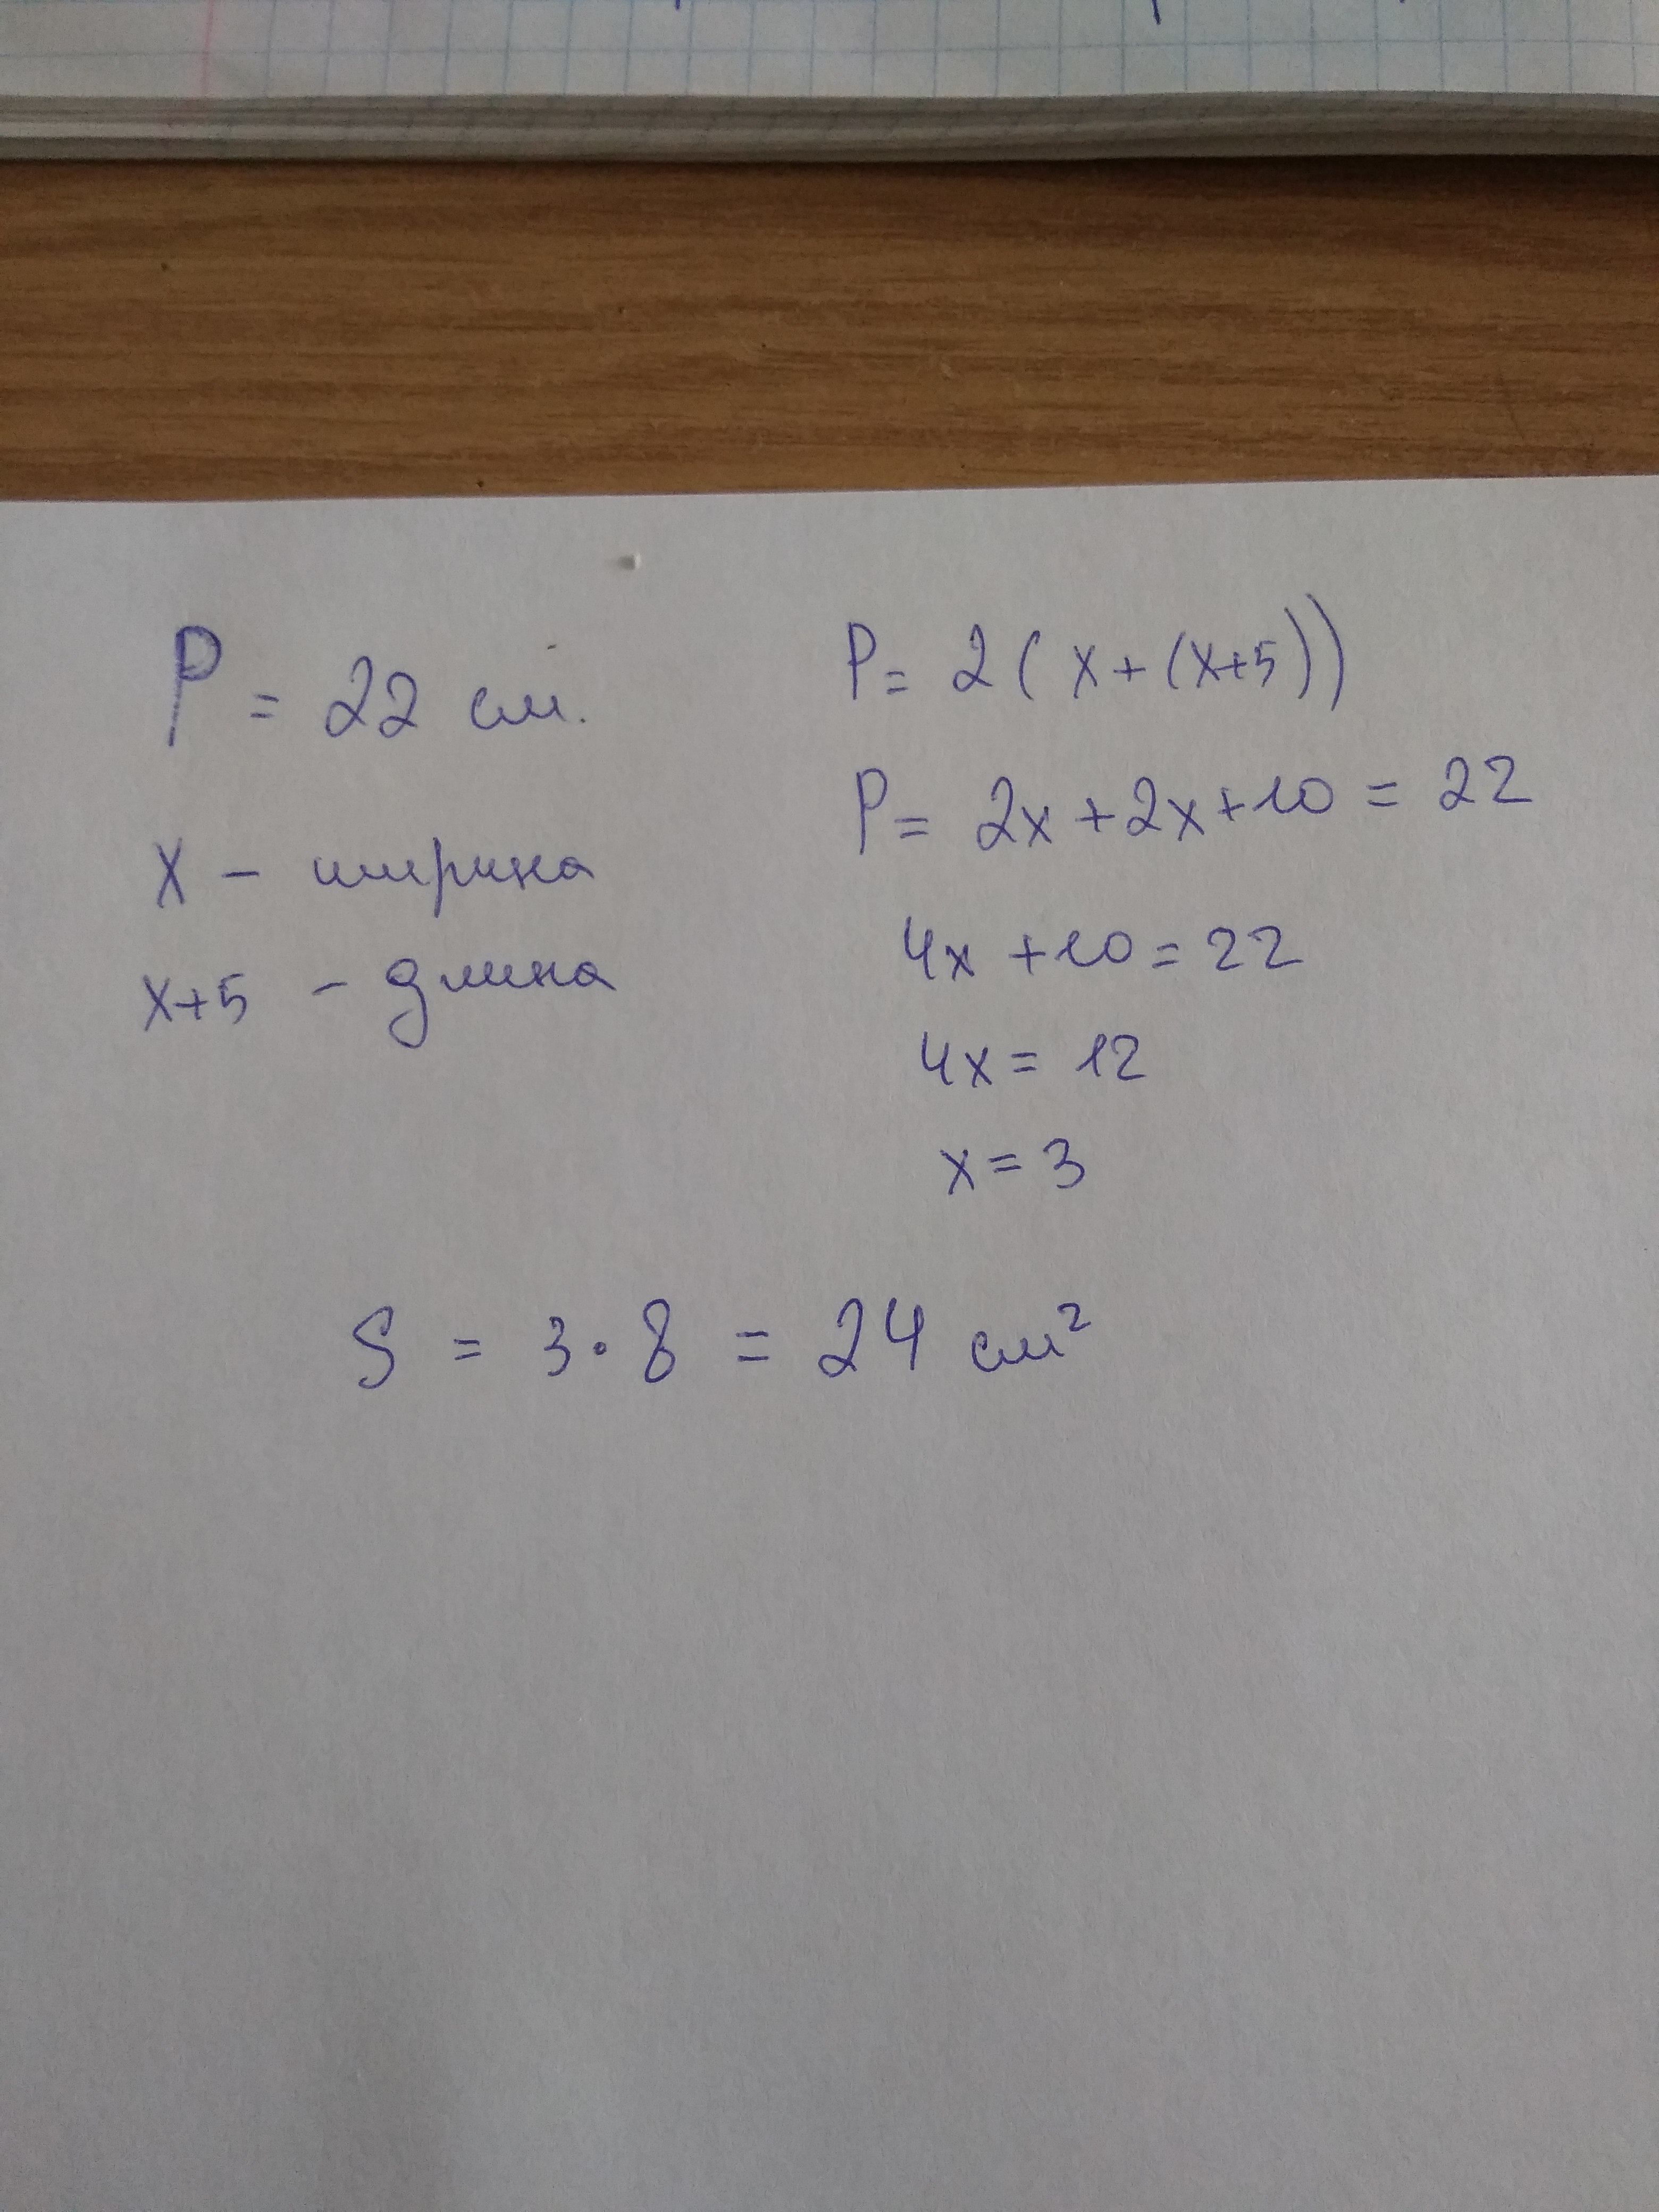 P = 22 см.
x – ширина
x+5 – длина
P = 2(x+(x+5))
P = 2x+2x+10 = 22
4x +10 = 22
4x = 12
x = 3
S = 3·8 = 24 см²